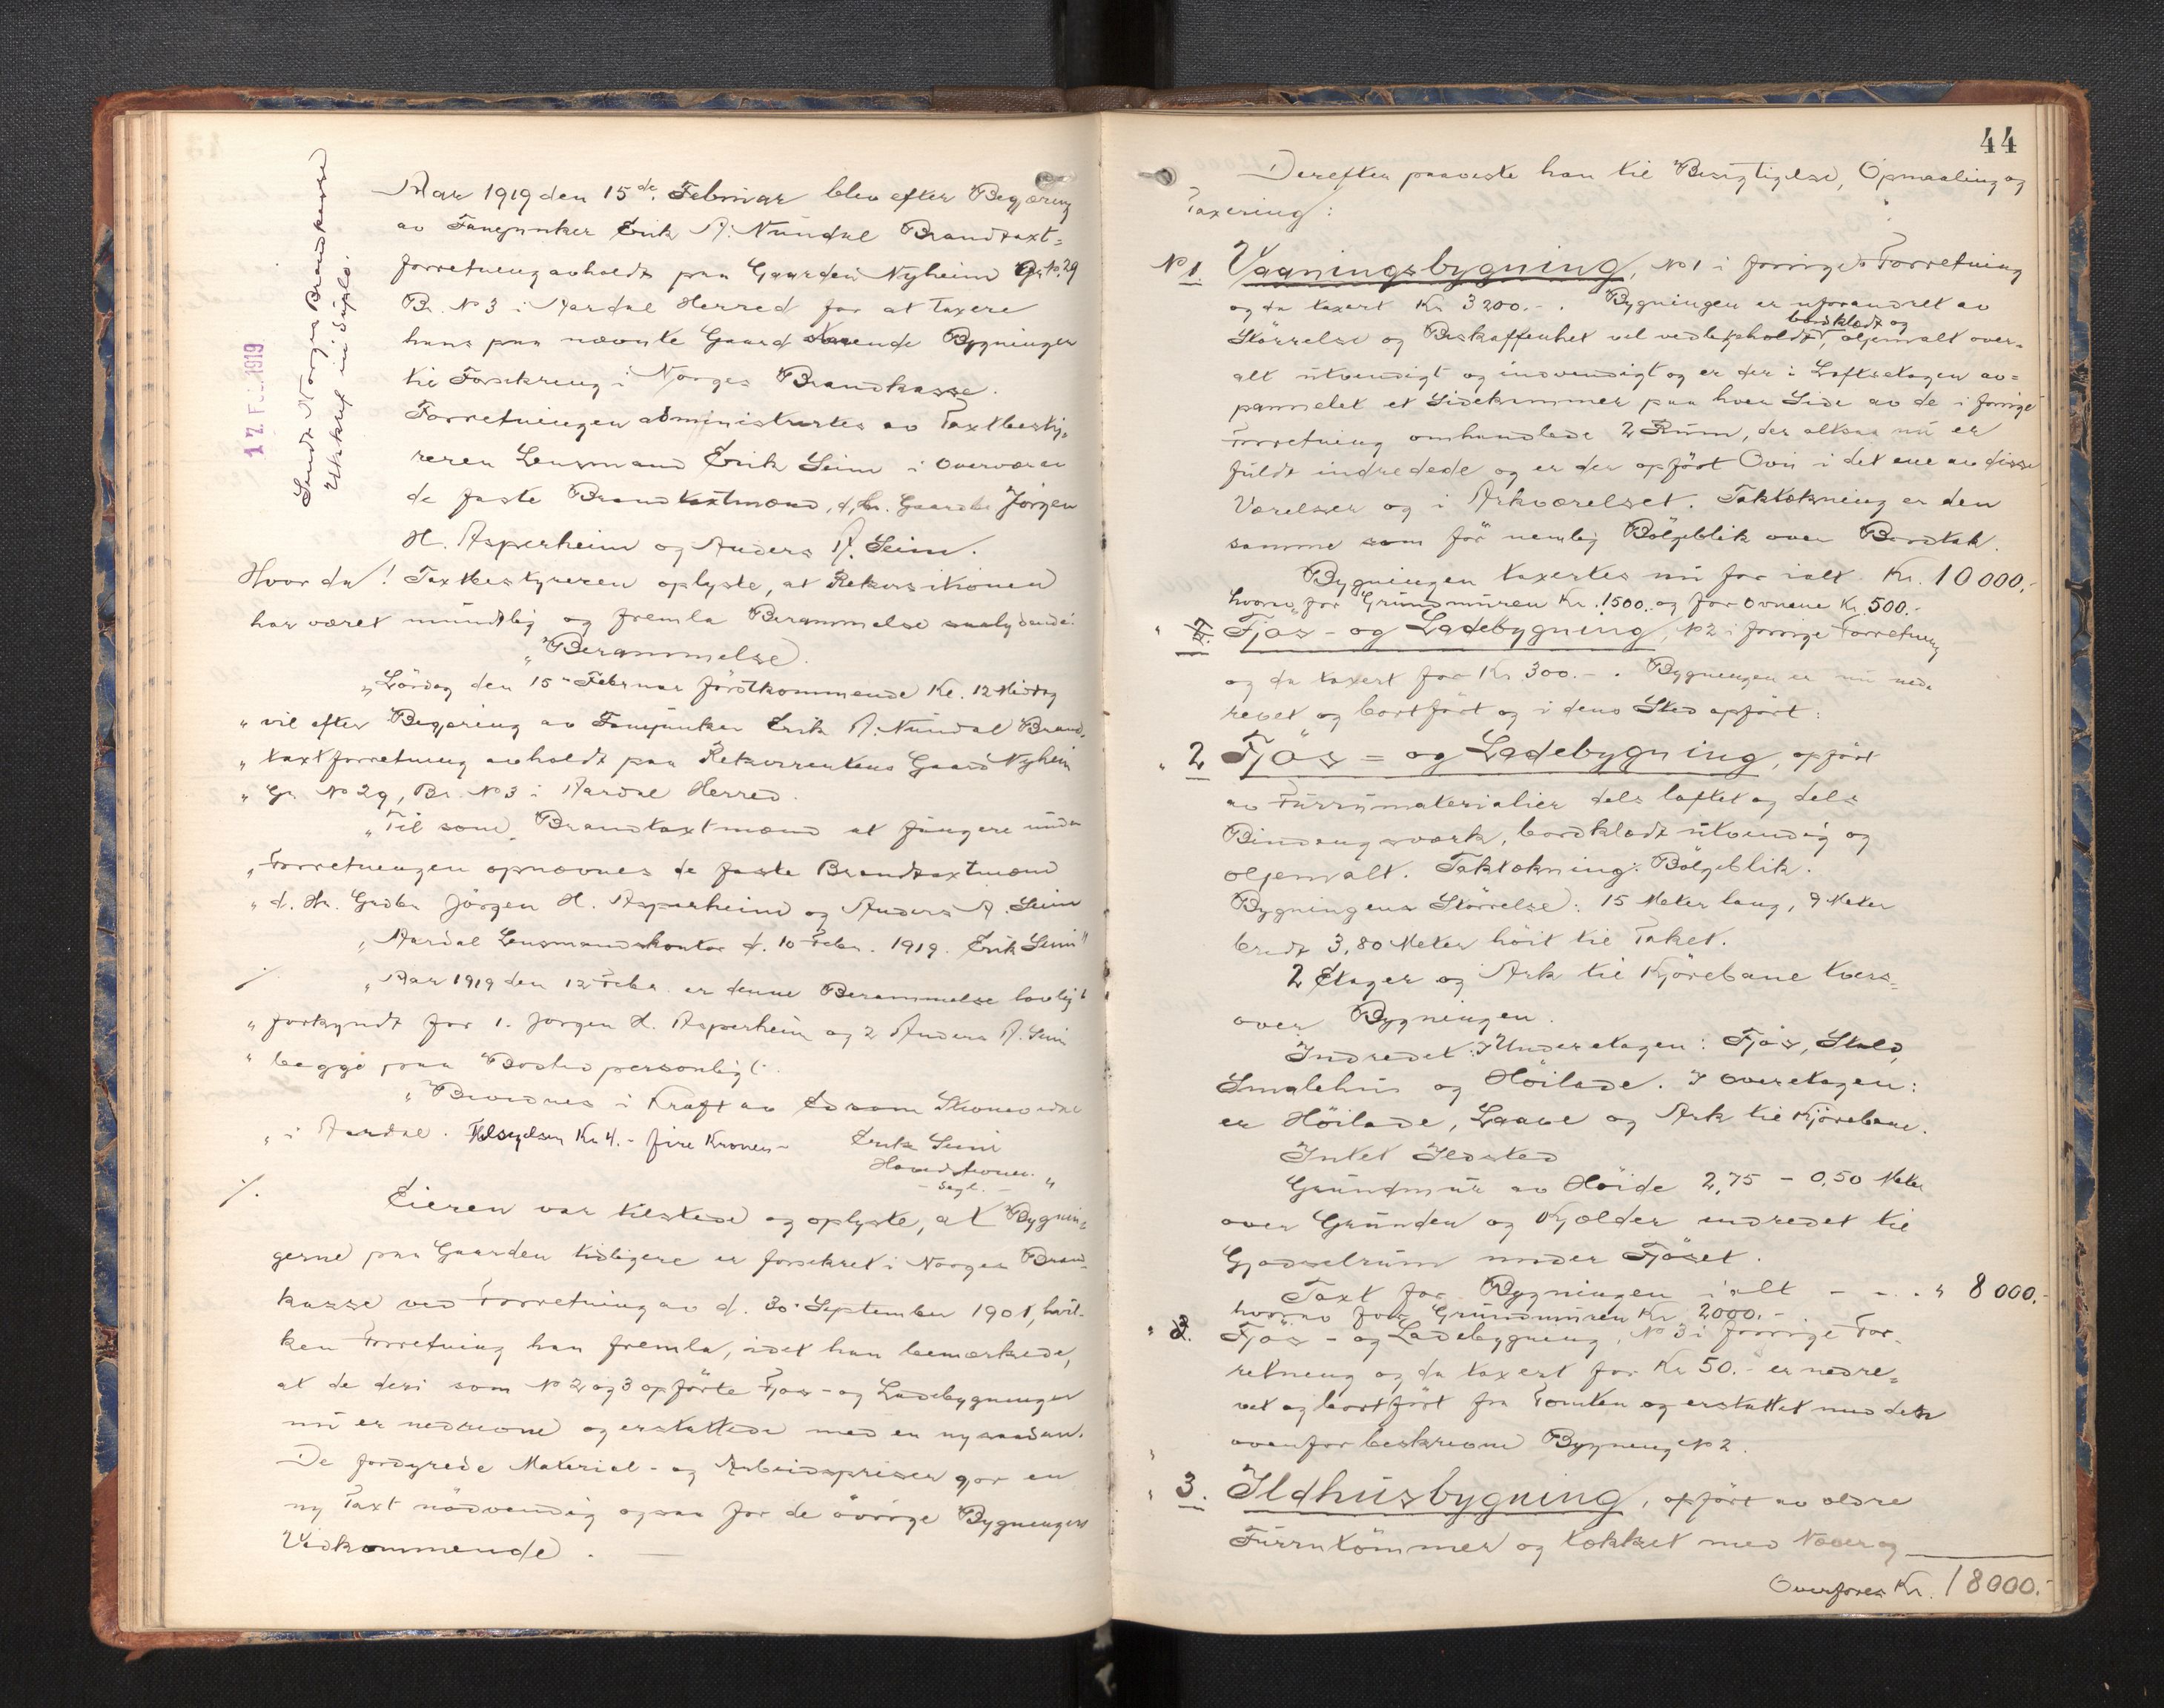 17. FEB. 1919
Sendt Norges Brandkasse
Utskrift in duplo.
Aar 1919 den 15de Februar blev efter Begjæring
av Fanejunker Erik A. Nundal Brandtaxt=
forretning avholdt paa Gaarden Nyheim Gr. No. 29
Br. No 3 i Aardal Herred for at taxere
hans paa nævnte Gaard staaende Bygninger
til Forsikring i Norges Brandkasse.
Forretningen administrertes av Taxtbesty=
reren Lensmand Erik Seim i Overvær av
de faste Brandtaxtmænd, d.hr. Gaardbr Jörgen
H. Asperheim og Anders A. Seim.
Hvor da! Taxtbestyreren oplyste, at Rekvisitionen
har været mundtlig og fremla Berammelse saalydende:
"Berammelse.
"Lördag den 15de Februar förstkommende Kl. 12 Middag
" vil efter Begjæring av Fanejunker Erik A. Nundal Brand=
" taxtforretning avholdt paa Rekvirentens Gaard Nyheim
" Gr. No 29, Br. No 3 i Aardal Herred.
"Til som Brandtaxtmænd at fungere under
"Forretningen opnævnes de faste Brandtaxtmænd
" d. Hr. Grdbr Jörgen H. Asperheim og Anders A. Seim
"Aardal Lensmandskontor d. 10 Febr. 1919. Erik Seim"
⁒ "Aar 1919 den 12 Febr. er denne Berammelse lovlig
" forkyndt for 1. Jorgen H. Asperheim og 2 Anders A. Seim
" begge paa Bosted personlig.
" Bevidnes i Kraft av Ed som Stevnevidne
" i Aardal. Tilsigelsen Kr 4.- fire Kroner- Erik Seim
Hovedstevnev. "
- Segl. -
⁒ Eieren var tilstede og oplyste, at Bygnin=
gerne paa Gaarden tidligere er forsikret i Norges Brand=
kasse ved Forretning av d. 30. September 1901, hvil-
ken Forretning han fremla, idet han bemærkede,
at de deri som No 2 og 3 opförte Fjös- og Ladebygninger
nu er nedrevne og erstattede med en ny saadan.
De fordyrede Material- og Arbeidspriser gjør en
ny Taxt nödvendig ogsaa for de övrige Bygningers
Vedkommende.
44
Derefter paaviste han til Besigtigelse, Opmaaling og
Taxering:
No 1. Vaaningsbygning, No 1 i forrige Forretning
og da taxert Kr 3200.-. Bygningen er uforandret av
bordklædt og
Störrelse og Beskaffenhet vel vedlikeholdt, oljemalt over=
alt utvendigt og indvendigt og er der i Loftsetagen av=
pannelet et Sidekammer paa hver Side av de i forrige
Forretning omhandlede 2 Rum, der altsaa nu er
fuldt indredede og er der opfört Ovn i det ene av disse
Værelser og i Arkværelset. Taktækning er den
samme som för nemlig Bölgeblik over Bordtak.
Bygningen taxertes nu for ialt Kr. 10 000.-
hvorav for Grundmuren Kr. 1500. og for Ovnene Kr. 500.-
" 2. Fjös- og Ladebygning, No 2 i forrige Forretning
og da taxert for Kr 300.-. Bygningen er nu ned=
revet og bortfört og i dens Sted opfört:
" 2 Fjös= og Ladebygning, opfört
av Furumaterialier dels laftet og dels
Bindingsværk, bordklædt utvendig og
oljemalt. Taktækning: Bölgeblik.
Bygningens Störrelse: 15 Meter lang, 9 Meter
bredt 3,80 Meter höit til Taket.
2 Etager og Ark til Kjörebane tvers=
over Bygningen.
Indredet: I Underetagen: Fjös, Stald,
Smalehus og Höilade. I Overetagen:
er Höilade, Laave og Ark til Kjörebane.
Intet Ildsted
Grundmur av Höide 2,75 - 0,50 Meter
over Grunden og Kjælder indredet til
Gjödselrum under Fjöset.
Taxt for Bygningen ialt - - - " 8 000.-
hvorav for Grundmuren Kr. 2000.-
" 3. Fjös- og Ladebygning, No 3 i forrige For-
retning og da taxert for Kr 50.- er nedre=
vet og bortfört fra Tomten og erstattet med den
ovenfor beskrevne Bygning No 2.
" 3. Ildhusbygning, opfört av ældre
Furutömmer og tækket med Næver og
Overföres Kr. 18000.-